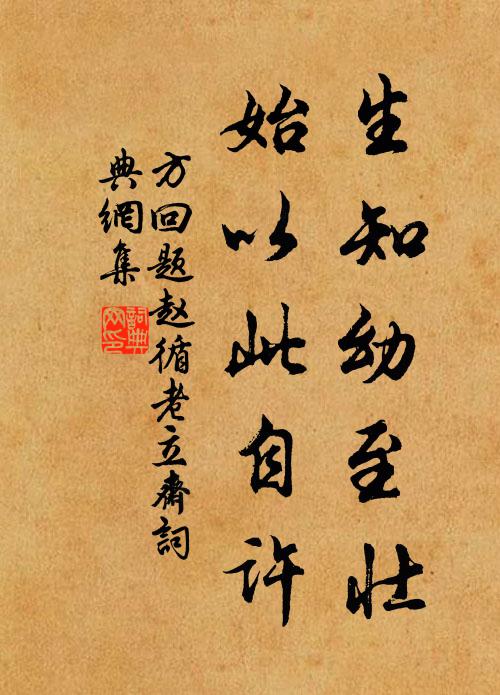 生知幼至壮
始以此自许
方回题赵循老立斋詞
典網集
詞典網印